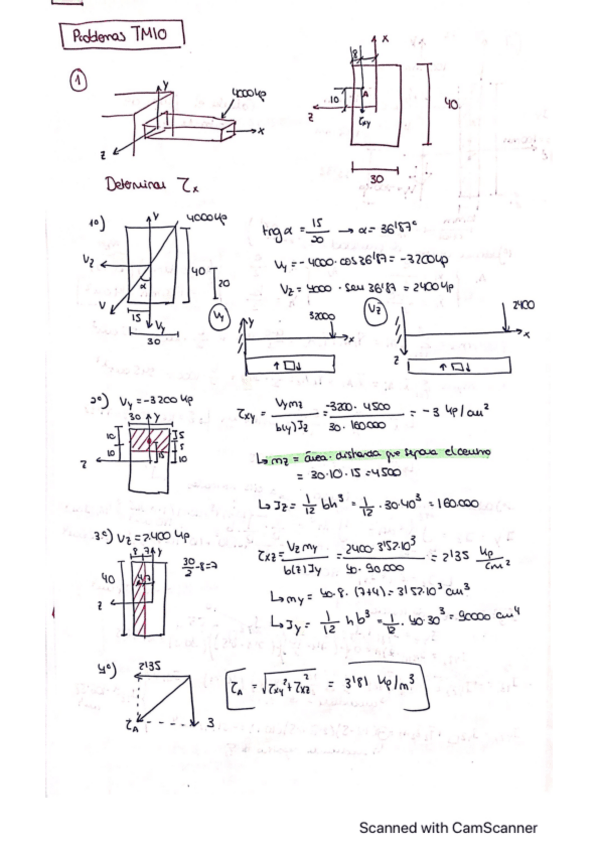 Problemas TM10
1
y
4000 kp
x
z
x
8
A
10
z
τxy
40
30
Determinar τx
1º)
y
4000 kp
Vz
α
V
Vy
40
20
15
30
tng α = 15/20 → α = 36'87º
Vy = -4000·cos 36'87 = -3200 kp
Vz = 4000 · sen 36'87 = 2400 kp
Vy
y
3200
x
↑□↓
Vz
2400
x
z
↑□↓
2º) Vy = -3200 kp
30
y
10
10
5
5
15
10
z
τxy = Vy mz / b(y) Jz = -3200 · 4500 / 30 · 160.000 = -3 kp/cm²
↳ mz = área · distancia que separa el centro
= 30·10·15 = 4500
↳ Jz = 1/12 bh³ = 1/12 · 30·40³ = 160.000
3º) Vz = 2400 kp
8 7 y
30/2 - 8 = 7
40
z
τxz = Vz my / b(z) Jy = 2400·3'52·10³ / 40 · 90.000 = 2'35 kp/cm²
↳ my = 40·8·(7+4) = 3'52·10³ cm³
↳ Jy = 1/12 h b³ = 1/12 · 40·30³ = 90000 cm⁴
4º)
2'35
τA
3
τA = √τxy² + τxz² = 3'81 kp/m³
Scanned with CamScanner